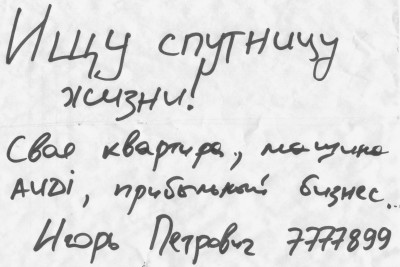 Ищу спутницу
жизни!
Своя квартира, машина
AUDi, прибыльный бизнес...
Игорь Петрович 7777899